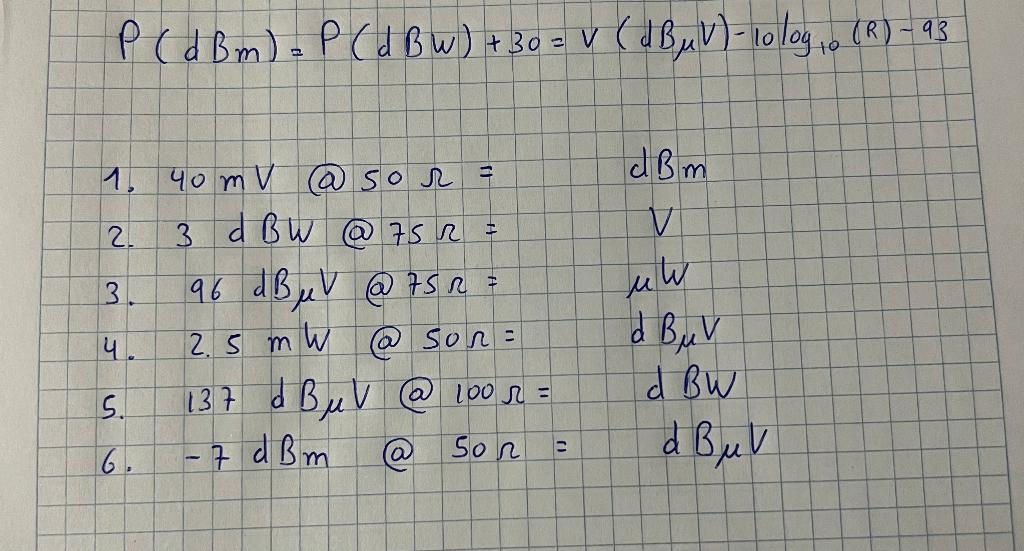 P (dBm) = P (dBW) + 30 = V (dBμV) - 10 log₁₀ (R) - 93
1. 40 mV @ 50 Ω = dBm
2. 3 dBW @ 75 Ω = V
3. 96 dBμV @ 75 Ω = μW
4. 2.5 mW @ 50 Ω = dBμV
5. 137 dBμV @ 100 Ω = dBW
6. -7 dBm @ 50 Ω = dBμV